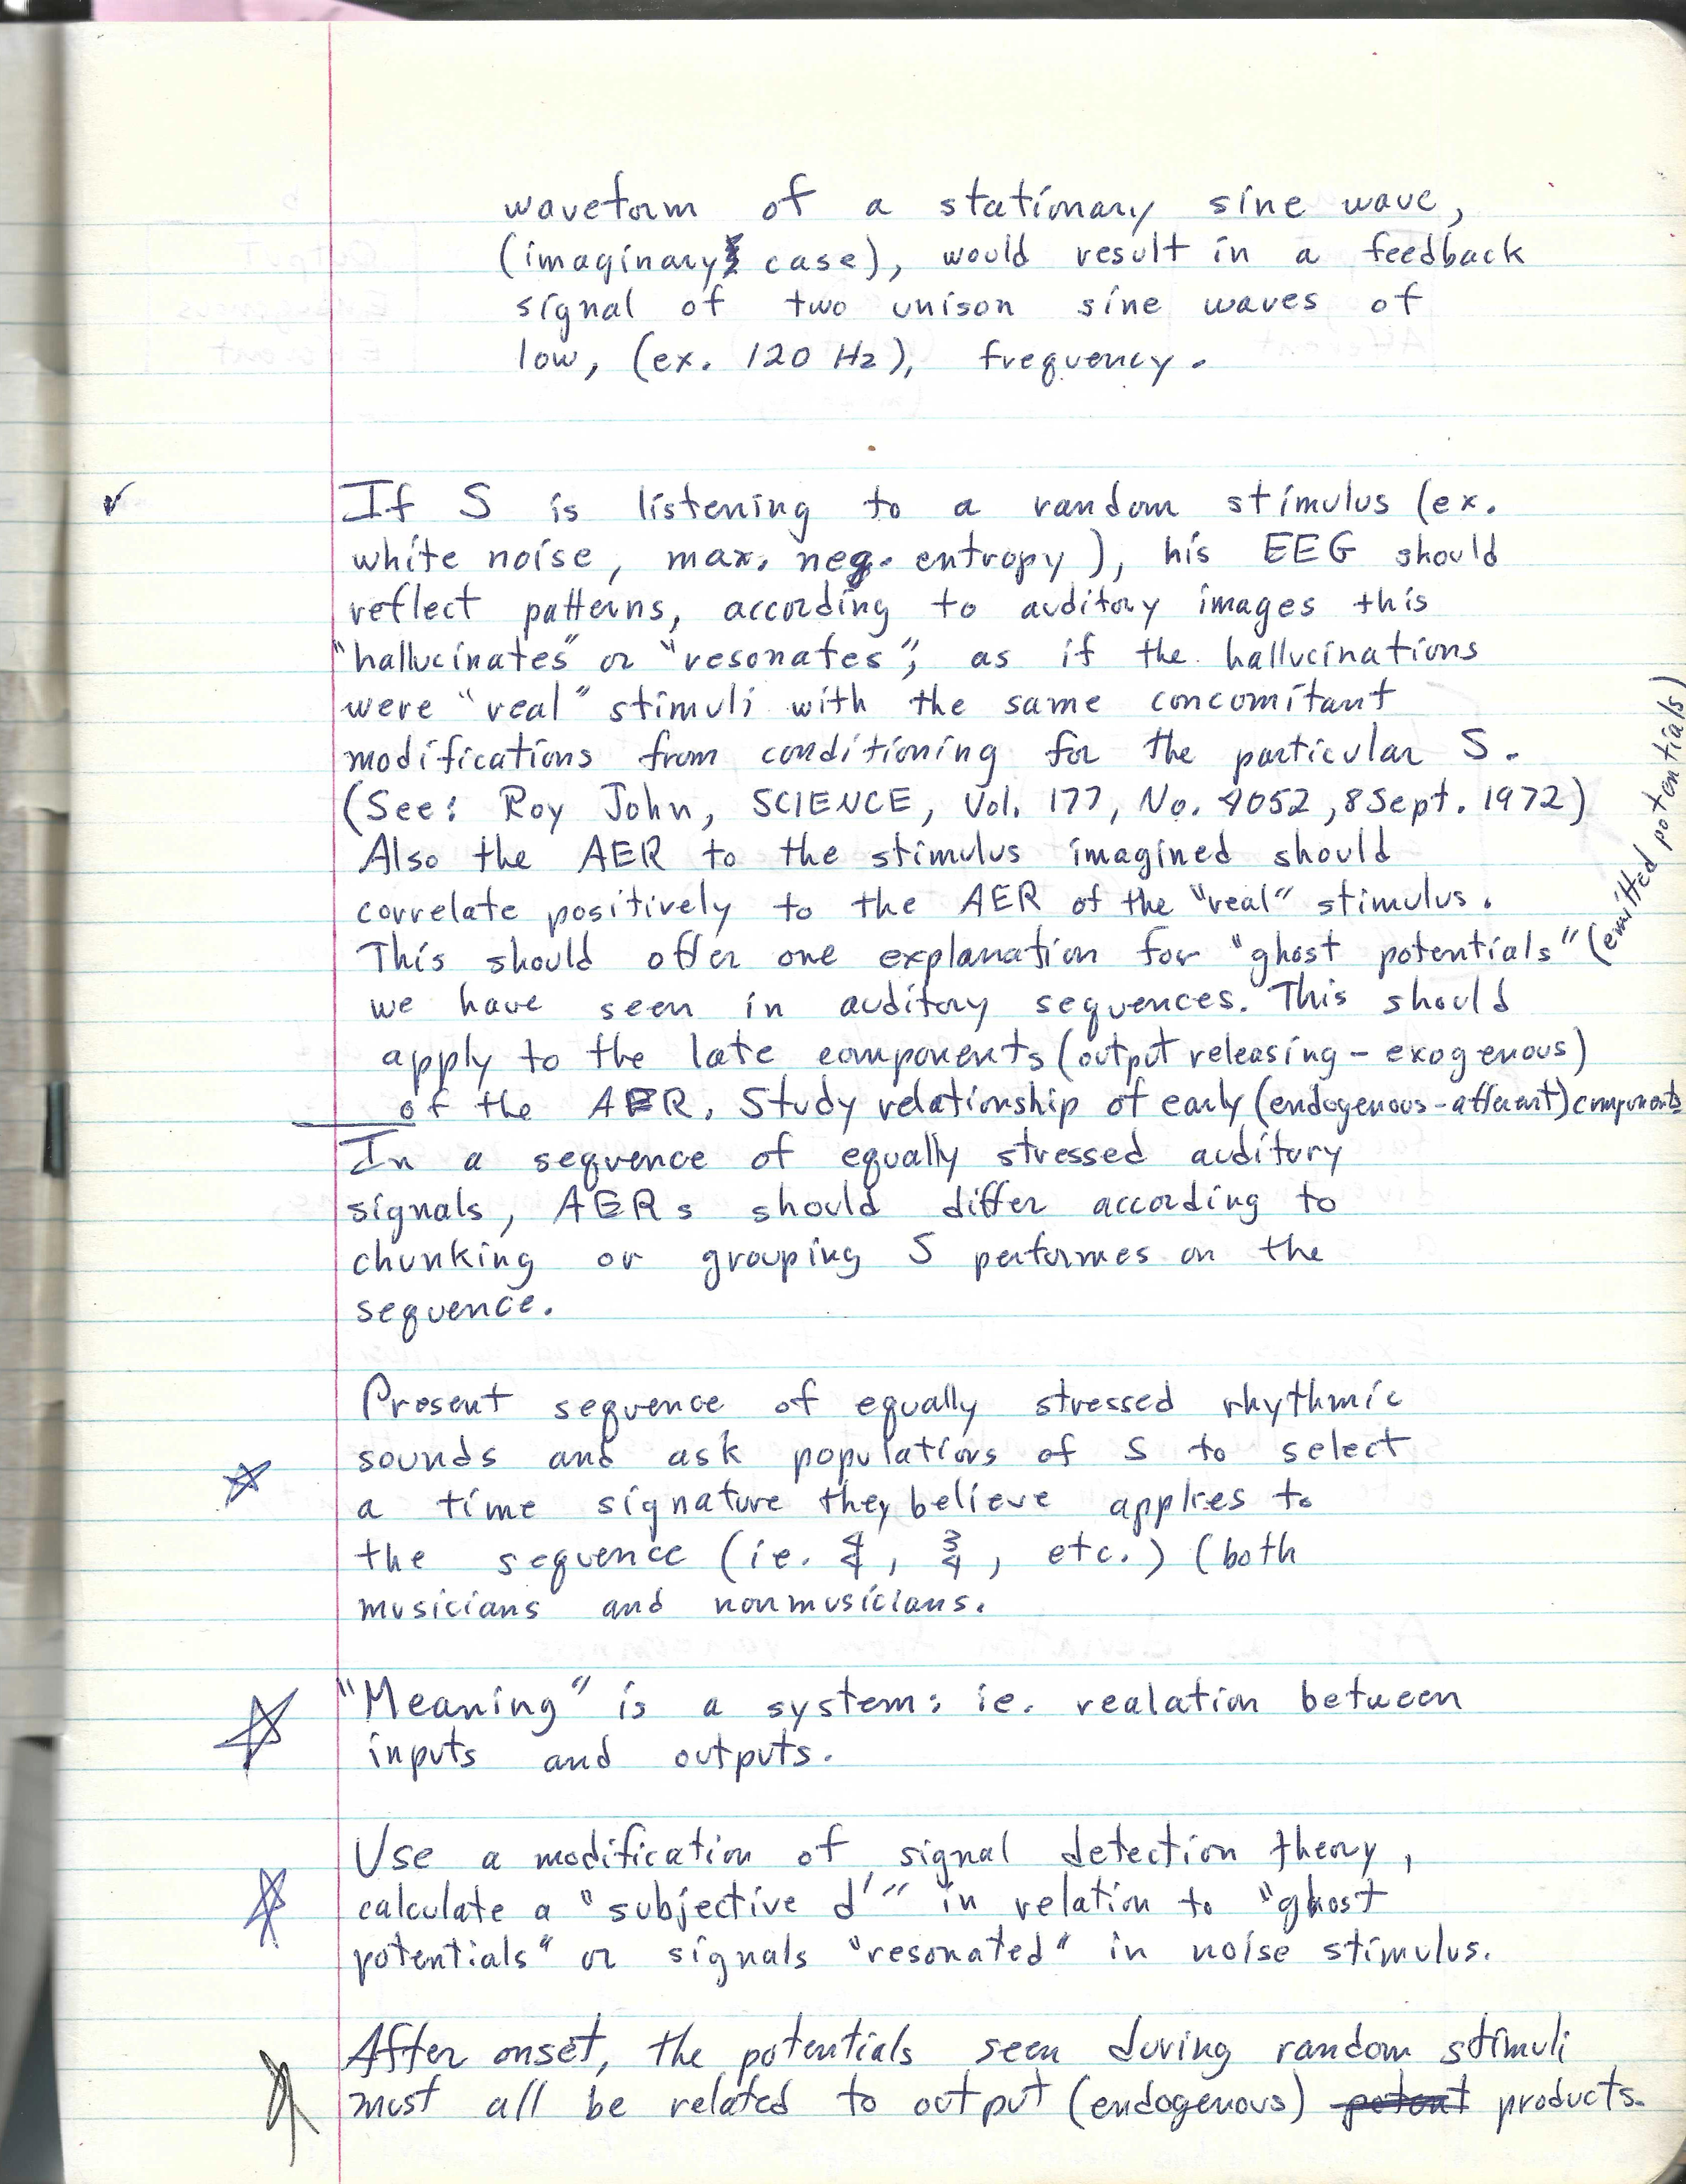 waveform of a stationary sine wave,
(imaginary case), would result in a feedback
signal of two unison sine waves of
low, (ex. 120 Hz), frequency.
If S is listening to a random stimulus (ex.
white noise, max. neg. entropy), his EEG should
reflect patterns, according to auditory images this
"hallucinates" or "resonates", as if the hallucinations
were "real" stimuli with the same concomitant
modifications from conditioning for the particular S.
(See: Roy John, SCIENCE, Vol. 177, No. 4052, 8 Sept. 1972)
Also the AER to the stimulus imagined should
correlate positively to the AER of the "real" stimulus.
This should offer one explanation for "ghost potentials" (emitted potentials)
we have seen in auditory sequences. This should
apply to the late components (output releasing - exogenous)
of the AER. Study relationship of early (endogenous - afferent) components
In a sequence of equally stressed auditory
signals, AERs should differ according to
chunking or grouping S performes on the
sequence.
Present sequence of equally stressed rhythmic
sounds and ask populations of S to select
a time signature they believe applies to
the sequence (ie. 4/4, 3/4, etc.) (both
musicians and nonmusicians.
"Meaning" is a system: ie. realation between
inputs and outputs.
Use a modification of signal detection theory,
calculate a "subjective d'" in relation to "ghost
potentials" or signals "resonated" in noise stimulus.
After onset, the potentials seen during random stimuli
must all be related to output (endogenous) potent products.